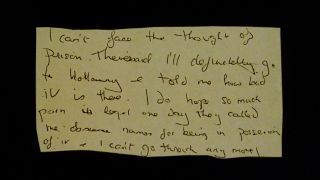 I can't face the thought of
prison. They said I'll definitely go
to Holloway & told me how bad
it is there. I do hope so much
porn is legal one day they called
me obscene names for being in possession
of it & I can't go through any more